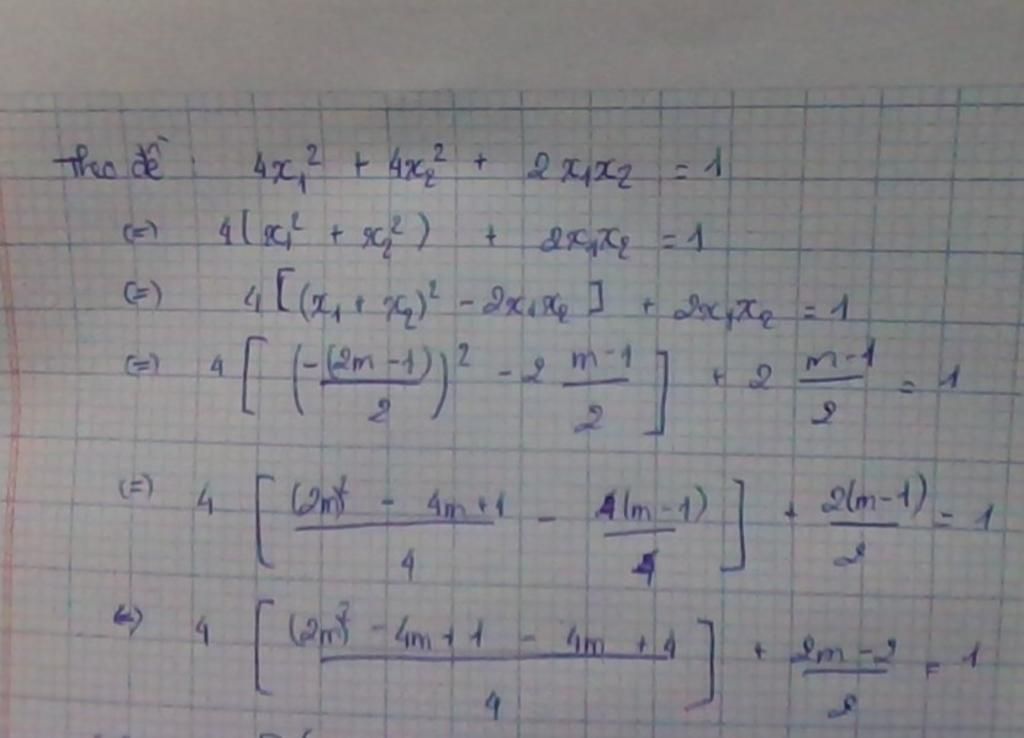 Theo đề : 4x₁² + 4x₂² + 2x₁x₂ = 1
(=) 4(x₁² + x₂²) + 2x₁x₂ = 1
(=) 4[(x₁ + x₂)² - 2x₁x₂] + 2x₁x₂ = 1
(=) 4[(-(2m-1)/2)² - 2 (m-1)/2] + 2 (m-1)/2 = 1
(=) 4[((2m)² - 4m+1)/4 - 4(m-1)/4] + 2(m-1)/2 = 1
(=) 4[((2m)² - 4m+1 - 4m + 4)/4] + (2m-2)/2 = 1